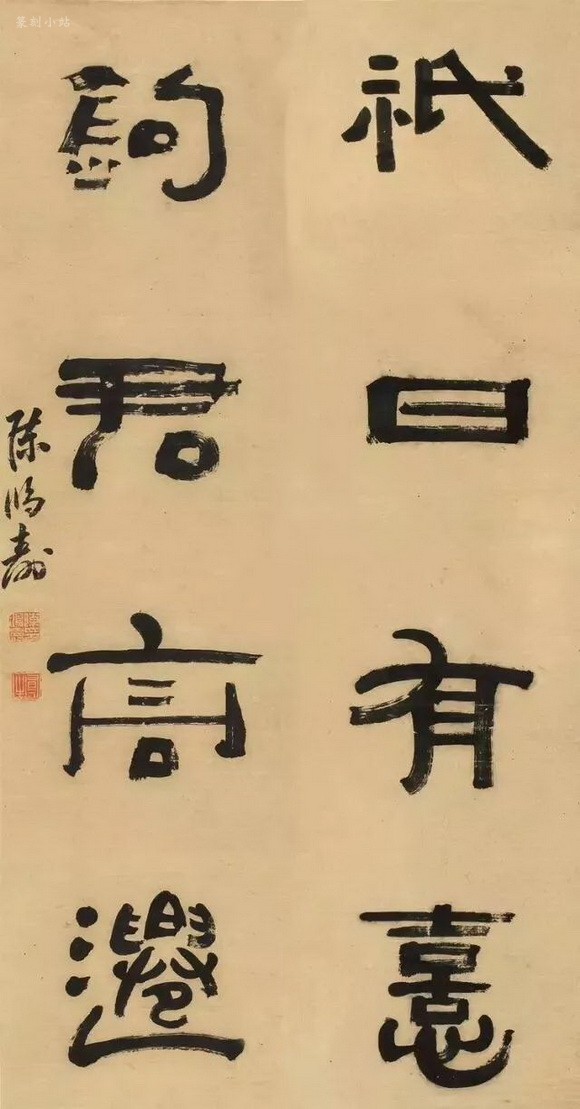 篆刻小站
祇日有憙
駒君高遷
陳鴻壽